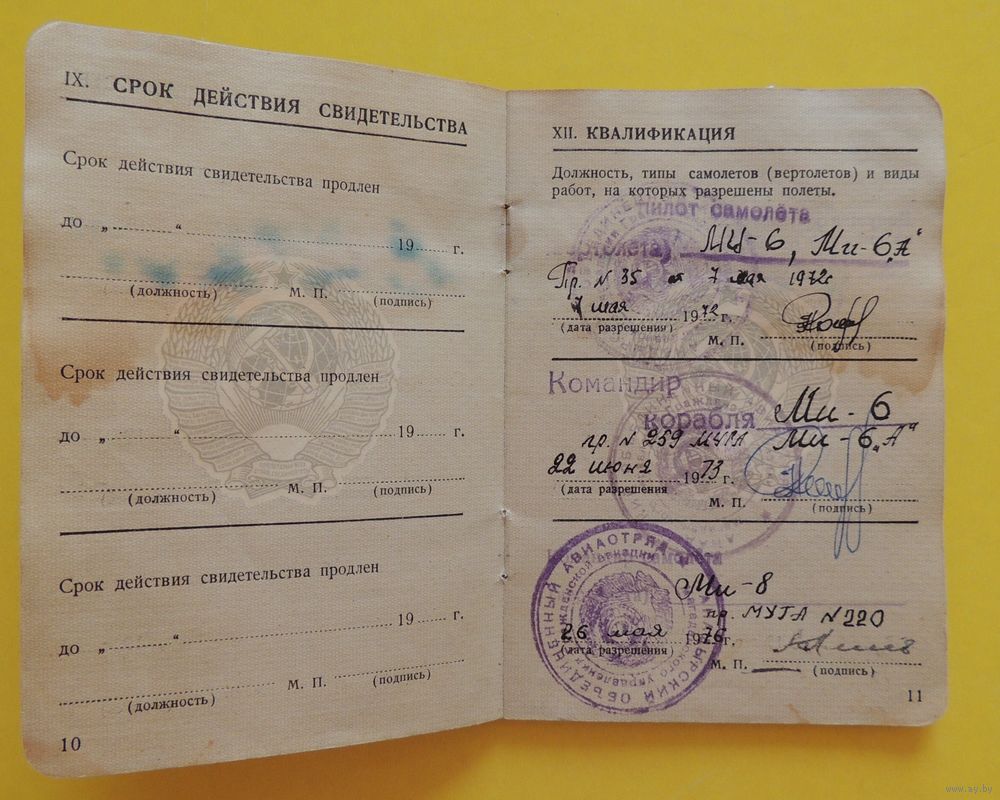 IX. СРОК ДЕЙСТВИЯ СВИДЕТЕЛЬСТВА
Срок действия свидетельства продлен
до „ “ 19 г.
(должность) М. П. (подпись)
Срок действия свидетельства продлен
до „ “ 19 г.
(должность) М. П. (подпись)
Срок действия свидетельства продлен
до „ “ 19 г.
(должность) М. П. (подпись)
10
XII. КВАЛИФИКАЦИЯ
Должность, типы самолетов (вертолетов) и виды
работ, на которых разрешены полеты.
пилот самолёта
Ми-6, Ми-6„А“
Пр. N 35 от 7 мая 1972г
7 мая 1972 г.
(дата разрешения) М. П. (подпись)
Командир
корабля Ми-6
пр. N 259 МУГА Ми-6„А“
22 июня 1973 г.
(дата разрешения М. П. (подпись)
самолёта
Ми-8
пр. МУГА N 220
26 мая 1976 г.
(дата разрешения) М. П. (подпись)
ОБЪЕДИНЕННЫЙ АВИАОТРЯД
11
www.ay.by